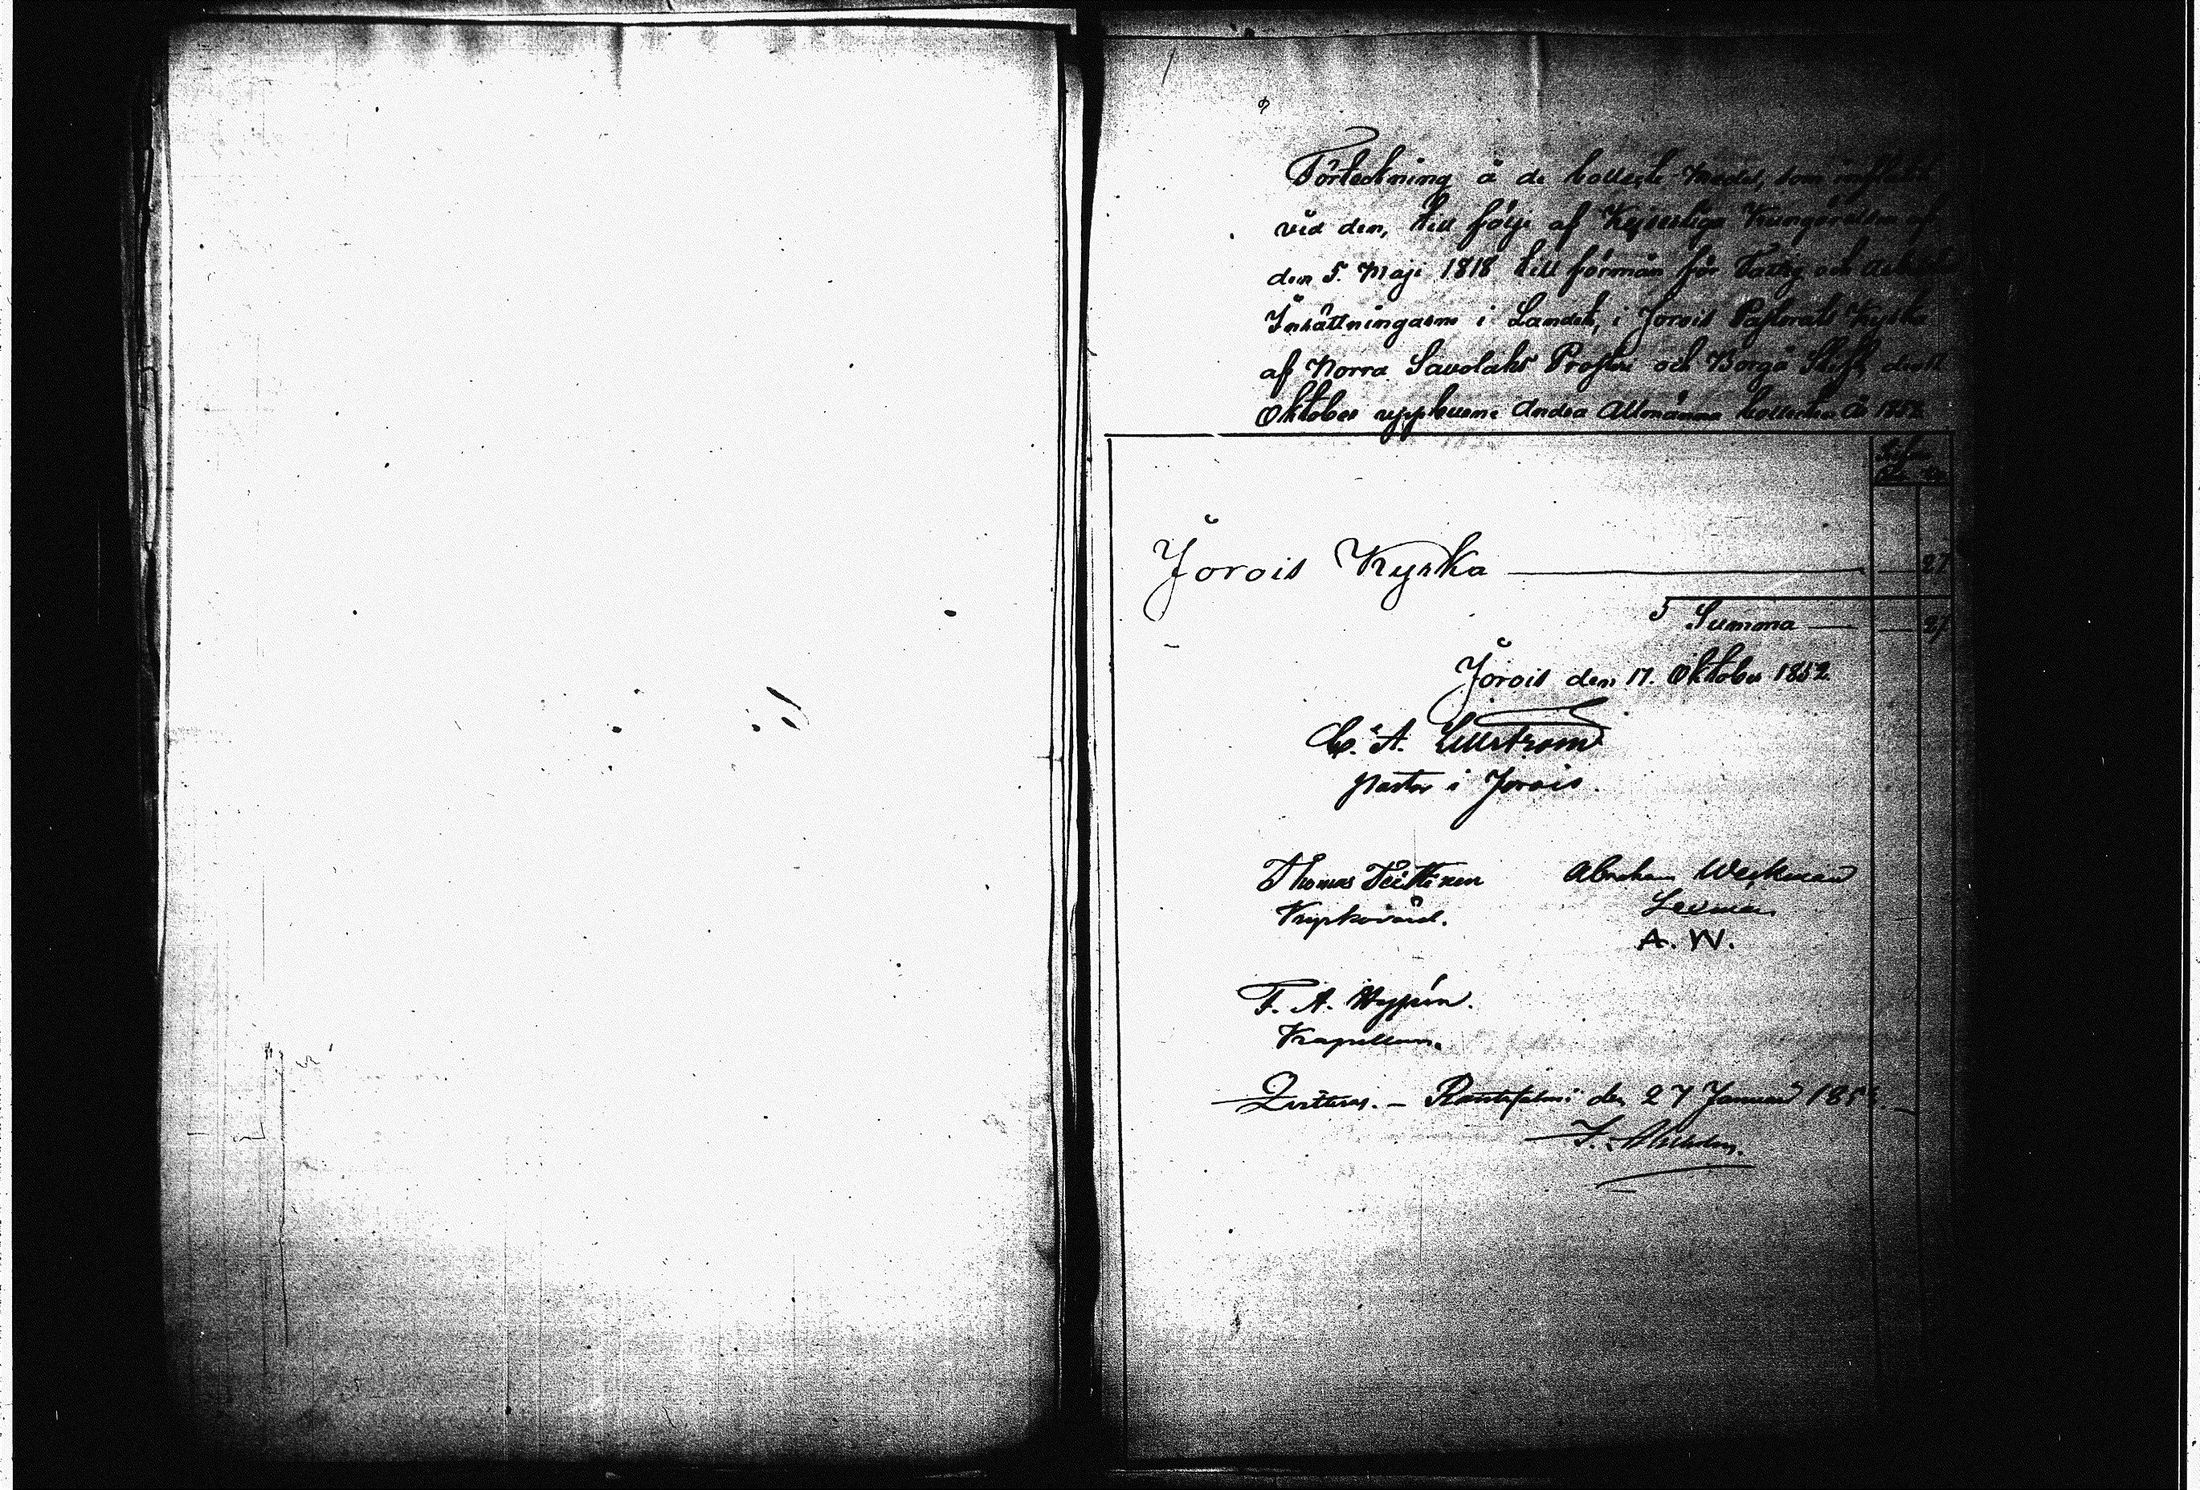 Förteckning å de collecte-medel, som influtit
vid den, till följe af Kejserliga Kungörelsen af
den 5. Maji 1818 till förmån för Fattig och Arbets
Inrättningarne i Landet, i Jorois Pastorats Kyrka
af Norra Savolaks Prosteri och Borgå Stift, den
Oktober uppburne Andra Allmänna collecten År 1852.
Jorois Kyrka — 27
Summa — 27
Jorois den 17. Oktober 1852
A.
pastor i Jorois.
Thomas Teittinen Abraham Weckman
Kyrkovärd. Lexman
A. W.
F. A.
Kapellan.
den 27 Januari